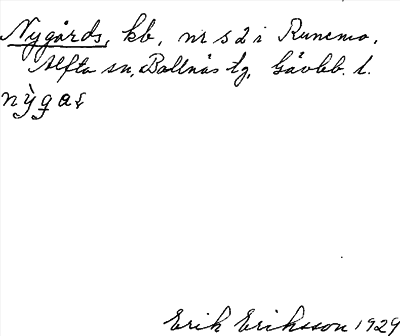 Nygårds, kb, nr s 2 i Runemo,
Alfta sn, Bollnäs tg, Gävleb. l.
nỳgaṣ
Erik Eriksson 1929